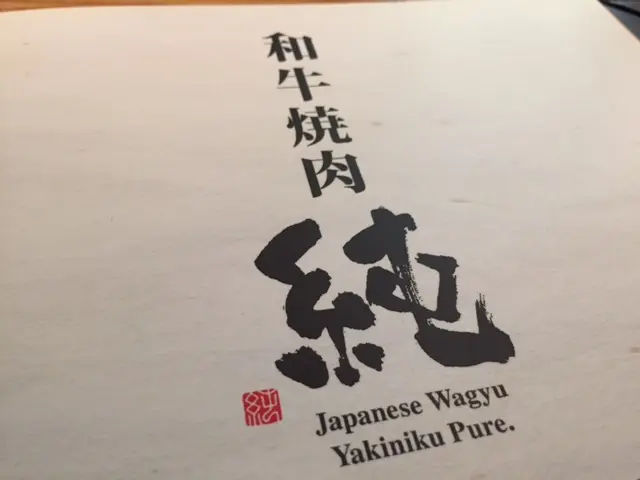 和牛焼肉
純
純
Japanese Wagyu
Yakiniku Pure.